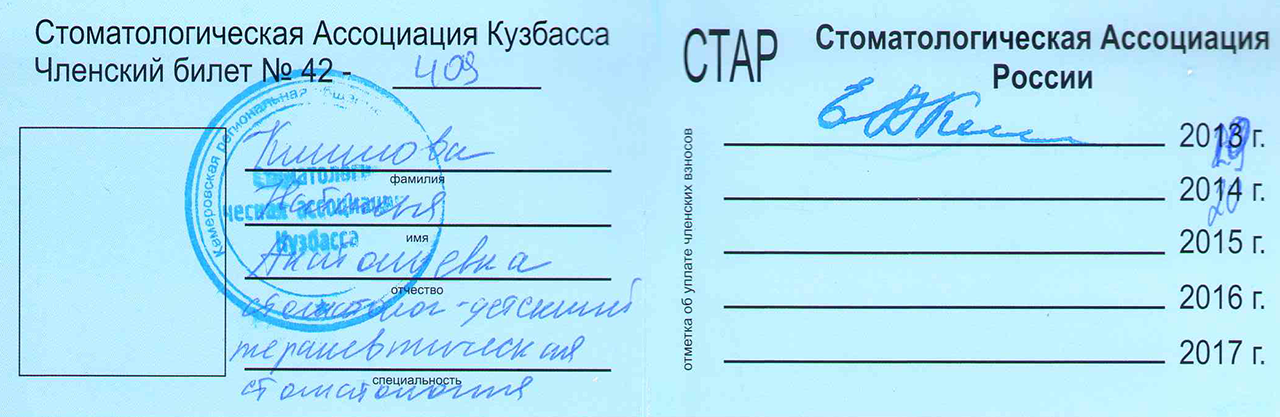 Стоматологическая Ассоциация Кузбасса
Членский билет № 42 - 409
Кемеровская региональная
Стоматологи-
ческая ассоциация
Кузбасса
Климова
фамилия
Наталья
имя
Анатольевна
отчество
стоматолог-детский
терапевтическая
специальность
стоматология
СТАР
Стоматологическая Ассоциация
России
отметка об уплате членских взносов
2013 г.
2014 г.
2015 г.
2016 г.
2017 г.